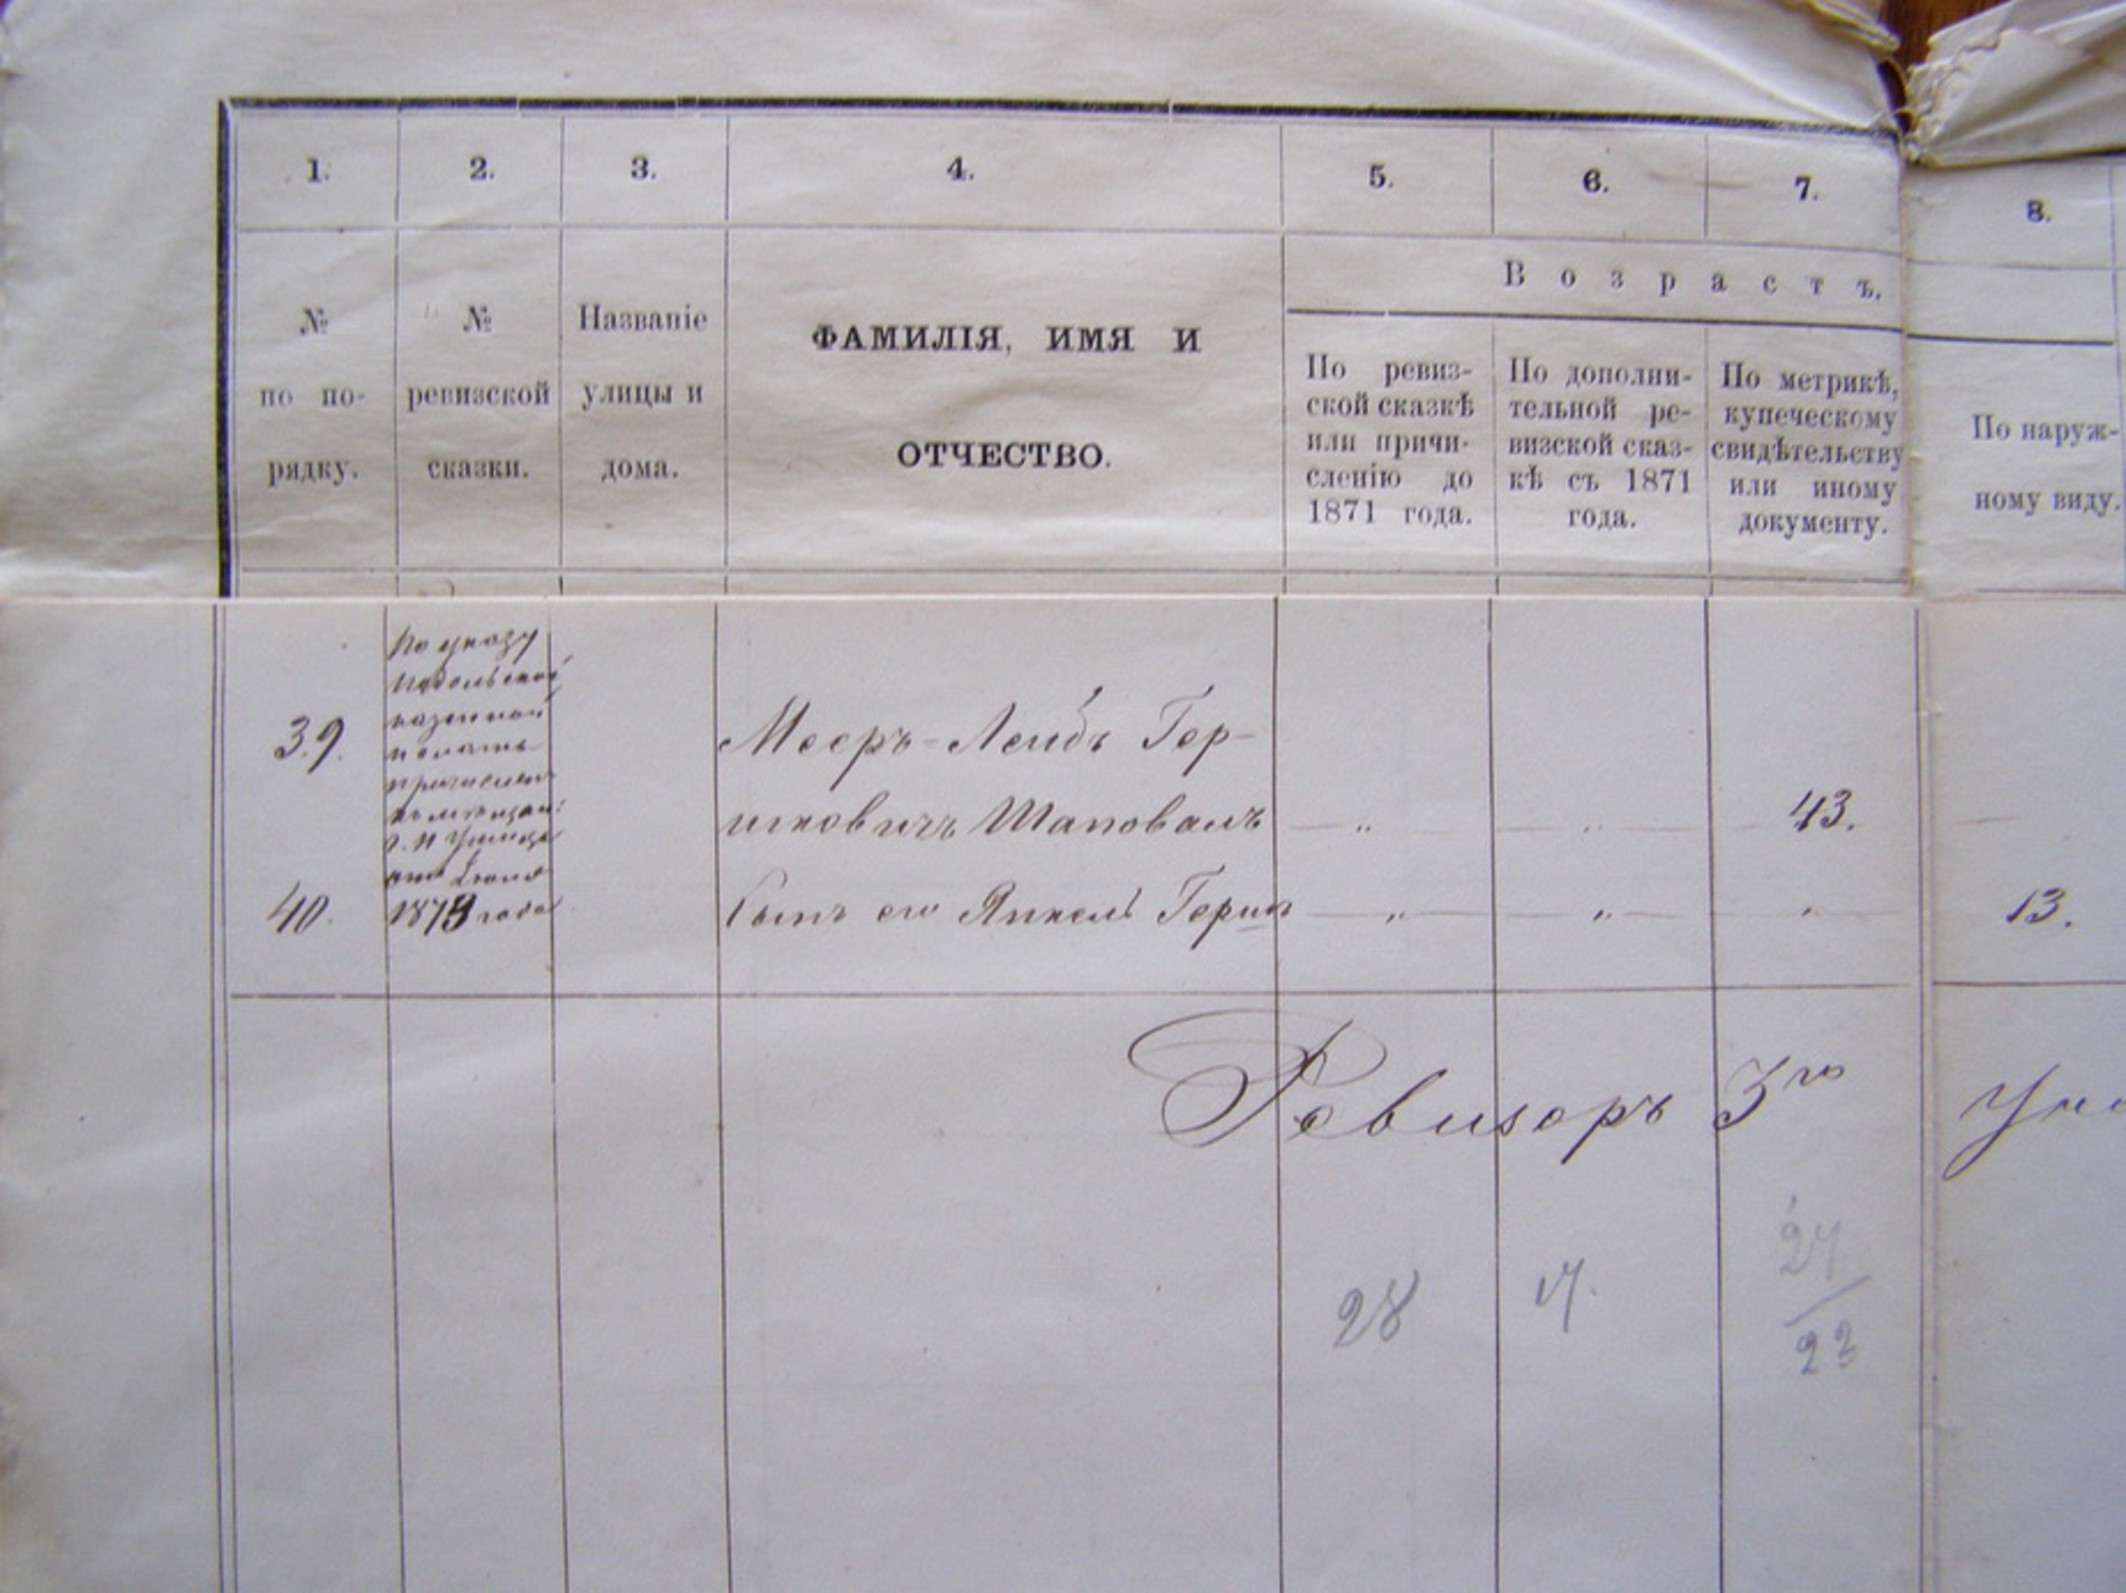 1. 2. 3. 4. 5. 6. 7. 8.
Возрастъ.
№
по по-
рядку.
№
ревизской
сказки.
Названіе
улицы и
дома.
ФАМИЛІЯ, ИМЯ И
ОТЧЕСТВО.
По ревиз-
ской сказкѣ
или причи-
сленію до
1871 года.
По дополни-
тельной ре-
визской сказ-
кѣ съ 1871
года.
По метрикѣ,
купеческому
свидѣтельству
или иному
документу.
По наруж-
ному виду.
По указу
Подольской
казенной
палаты
причислен
къ мѣщан:
г. Н Ушица
1873 года
39. Мееръ-Лейбъ Гер-
шковичъ Шаповалъ — „ — „ — 43. —
40. Сынъ его Янкель Герш — „ — „ — „ 13.
Ревизоръ 3го
28 17. 24
22